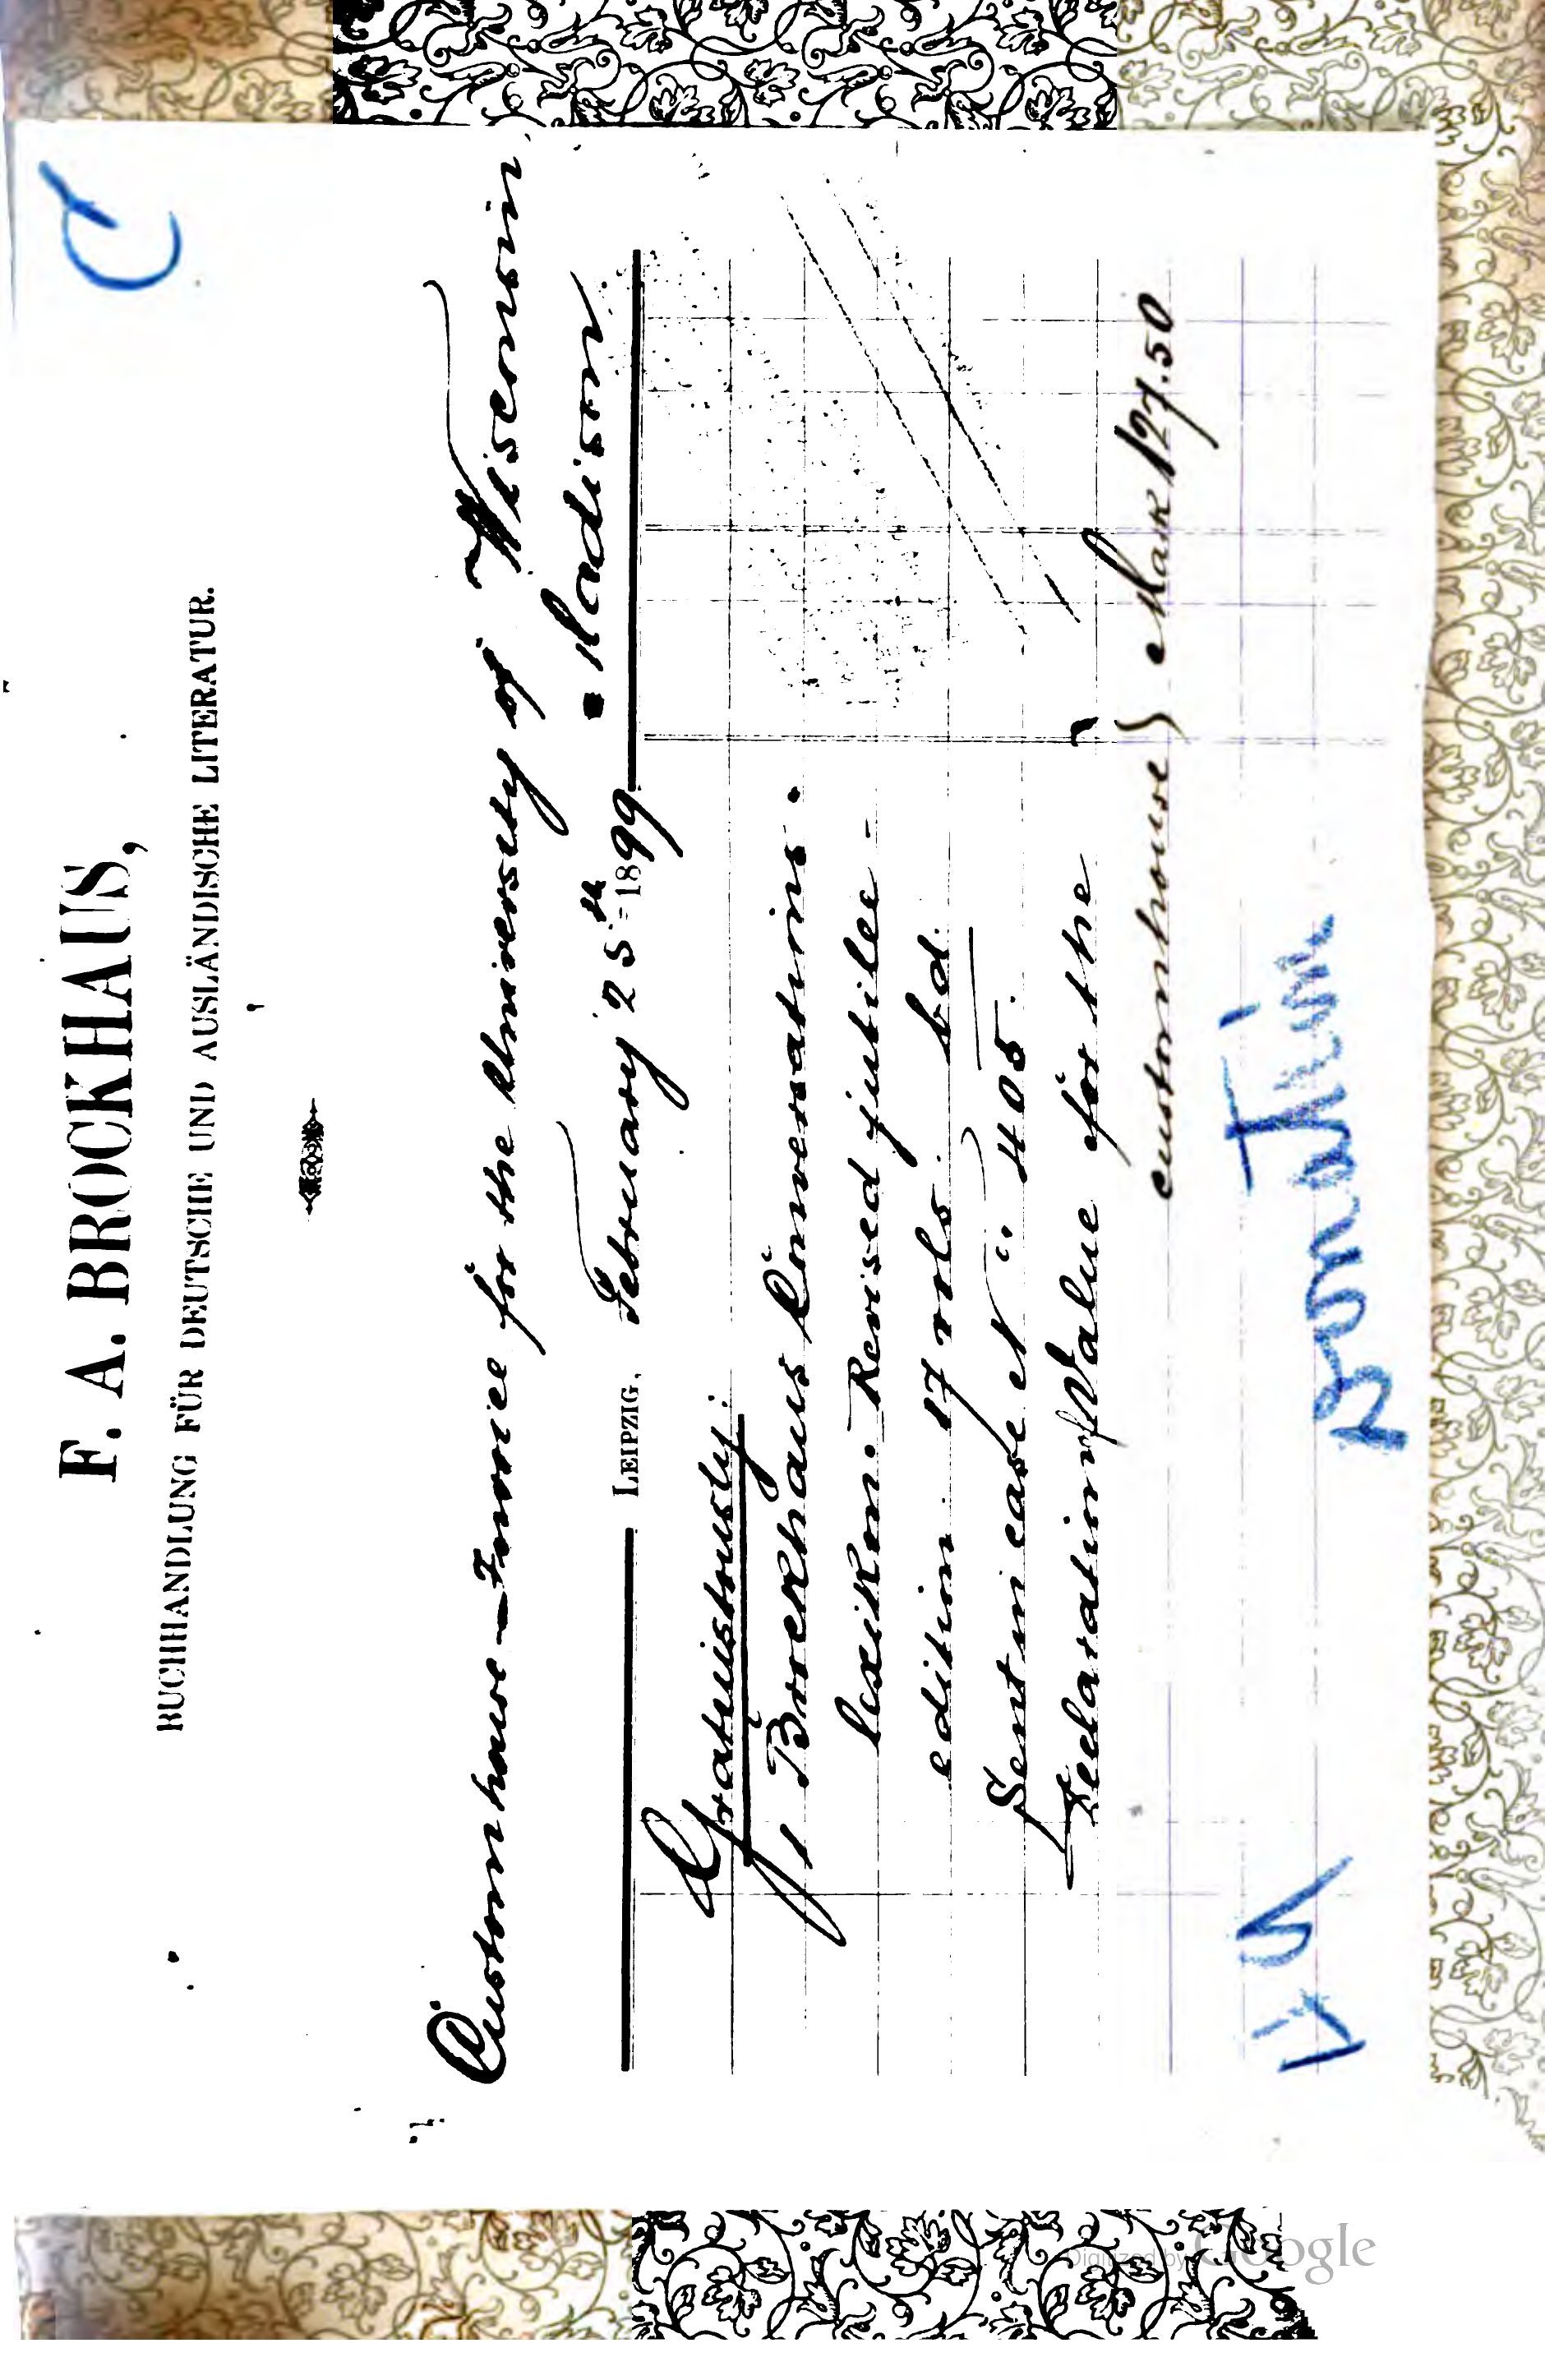 F. A. BROCKHAUS,
BUCHHANDLUNG FÜR DEUTSCHE UND AUSLÄNDISCHE LITERATUR.
Customhouse-Invoice for the University of Wisconsin,
Madison
LEIPZIG, February 25th 1899
Gratuistously:
1 Brockhaus Conversations-
lexikon. Revised jubilee-
edition. 17 vols. bd.
Sent in case No: 405.
Declaration of Value for the
customhouse } Mark 127.50
Donation
Digitized by Google